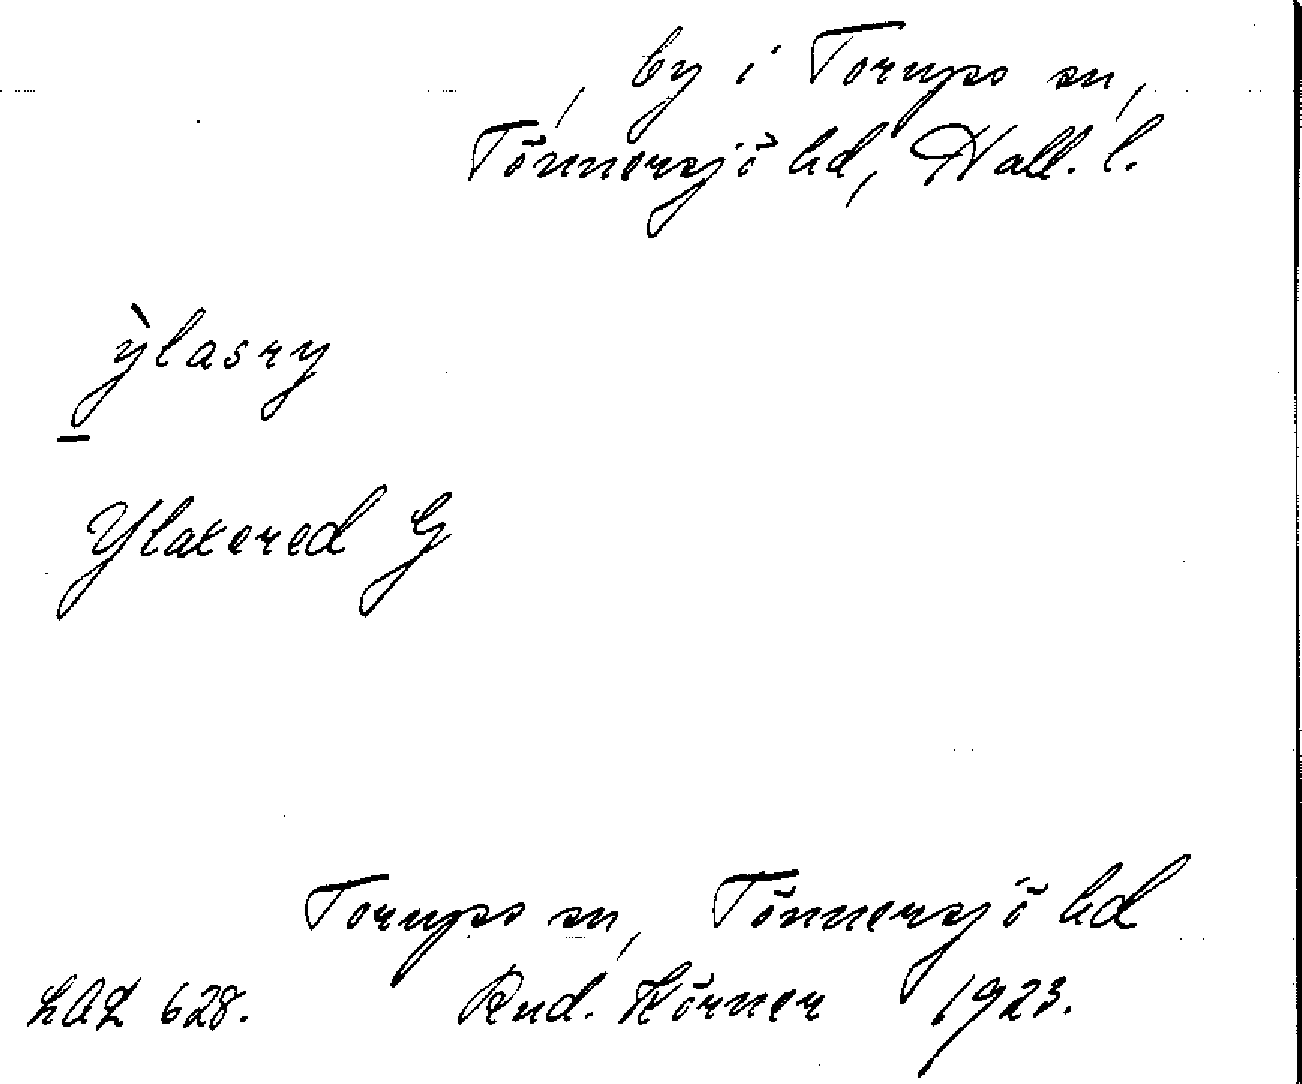 , by i Torups sn,
Tönnersjö hd, Hall. l.
ỳlasry
Ylaxered G
Torups sn, Tönnersjö hd
LAL 628. Rud. Körner 1923.